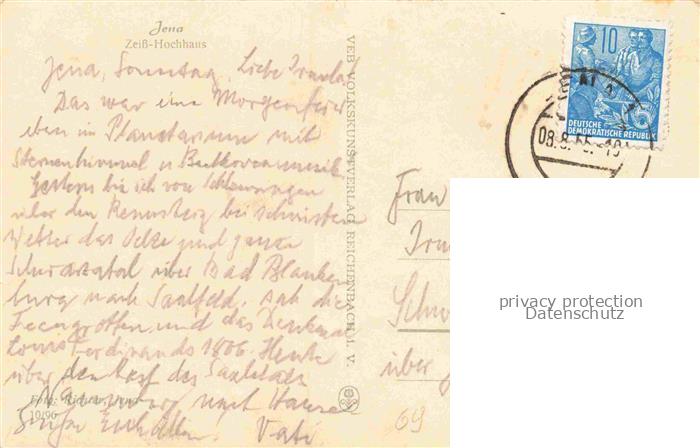 Jena
Zeiß-Hochhaus
Jena, Sonntag, Liebe Irmela!
Das war eine Morgenfeier
eben im Planetarium mit
Sternenhimmel u Beethovenmusik
Gestern bin ich von Schleusingen
über den Rennsteig bei schönsten
Wetter das und ganze
Schwarzatal über Bad Blanken
burg nach Saalfeld, sah die
Feengrotten und das Denkmal
Louis Ferdinands 1806. Heute
über den Rest des Saaletales
Naumburg nach Hause
Foto: Richter, Jena
10/96
Vati
VEB VOLKSKUNSTVERLAG REICHENBACH I. V.
10
5
DEUTSCHE
DEMOKRATISCHE REPUBLIK
08.8.55.-10
Frau
Irm
Schw
über
69
privacy protection
Datenschutz